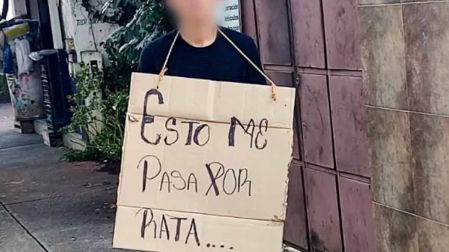 Esto me
Pasa XPor
Rata....